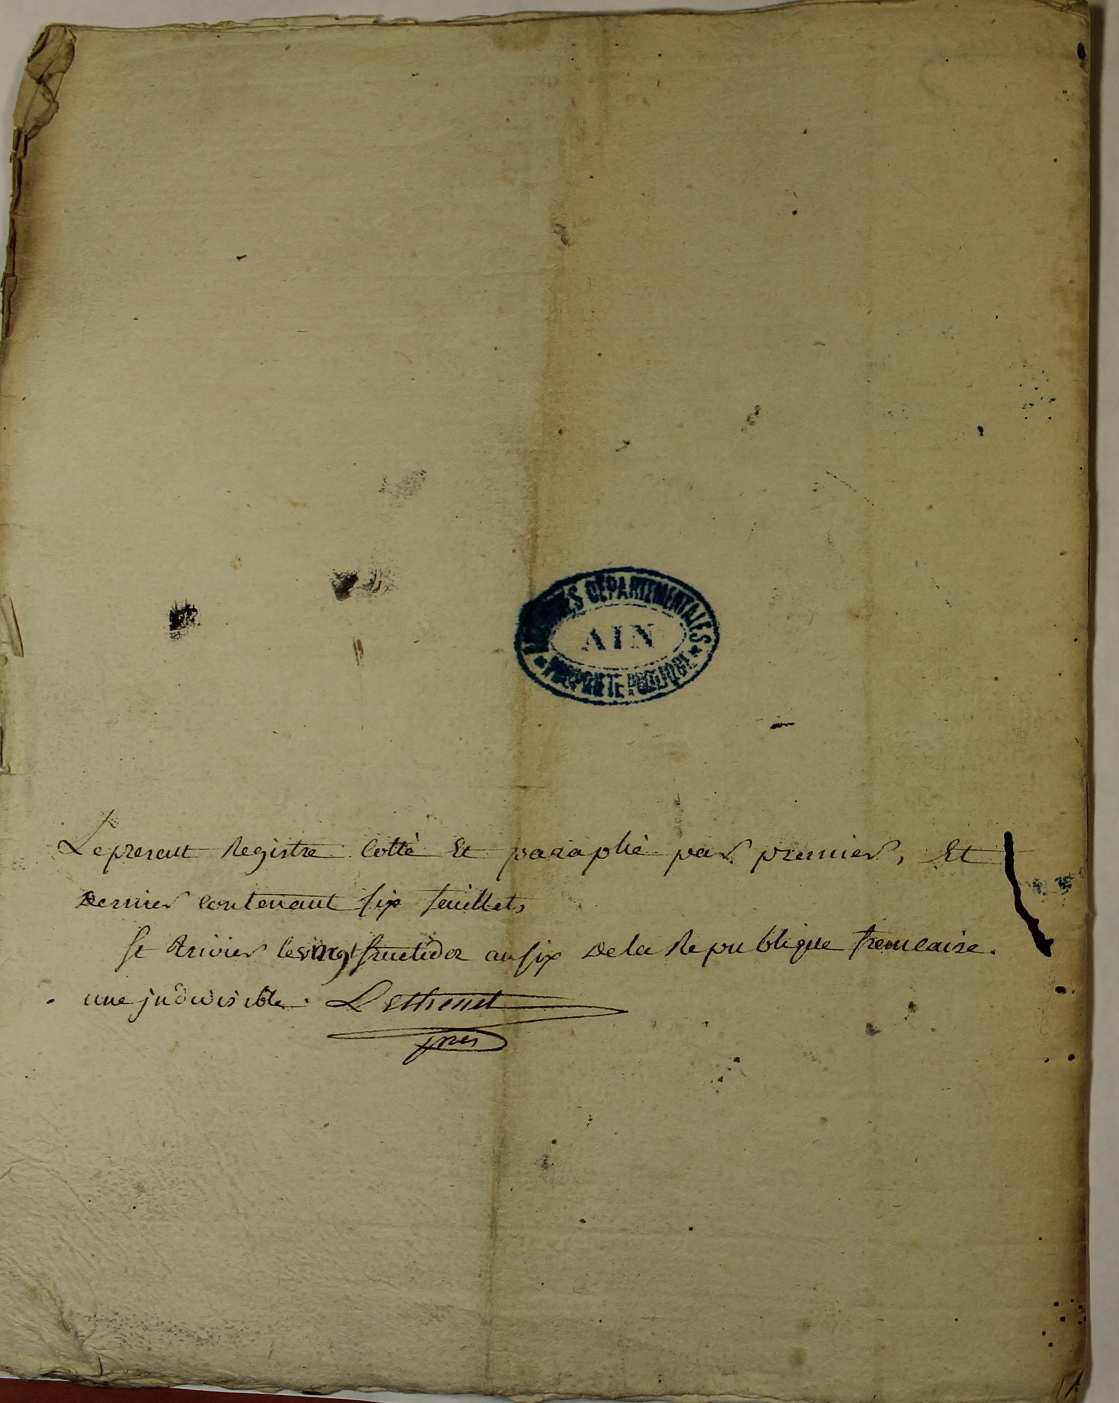 ARCHIVES DÉPARTEMENTALES
AIN
PROPRIÉTÉ PUBLIQUE
Le present Registre Cotté Et paraphé par premier, Et
Dernier contenant six feuillets
St trivier le vingt fructidor an six De la Republique francaise.
une jndivisible.